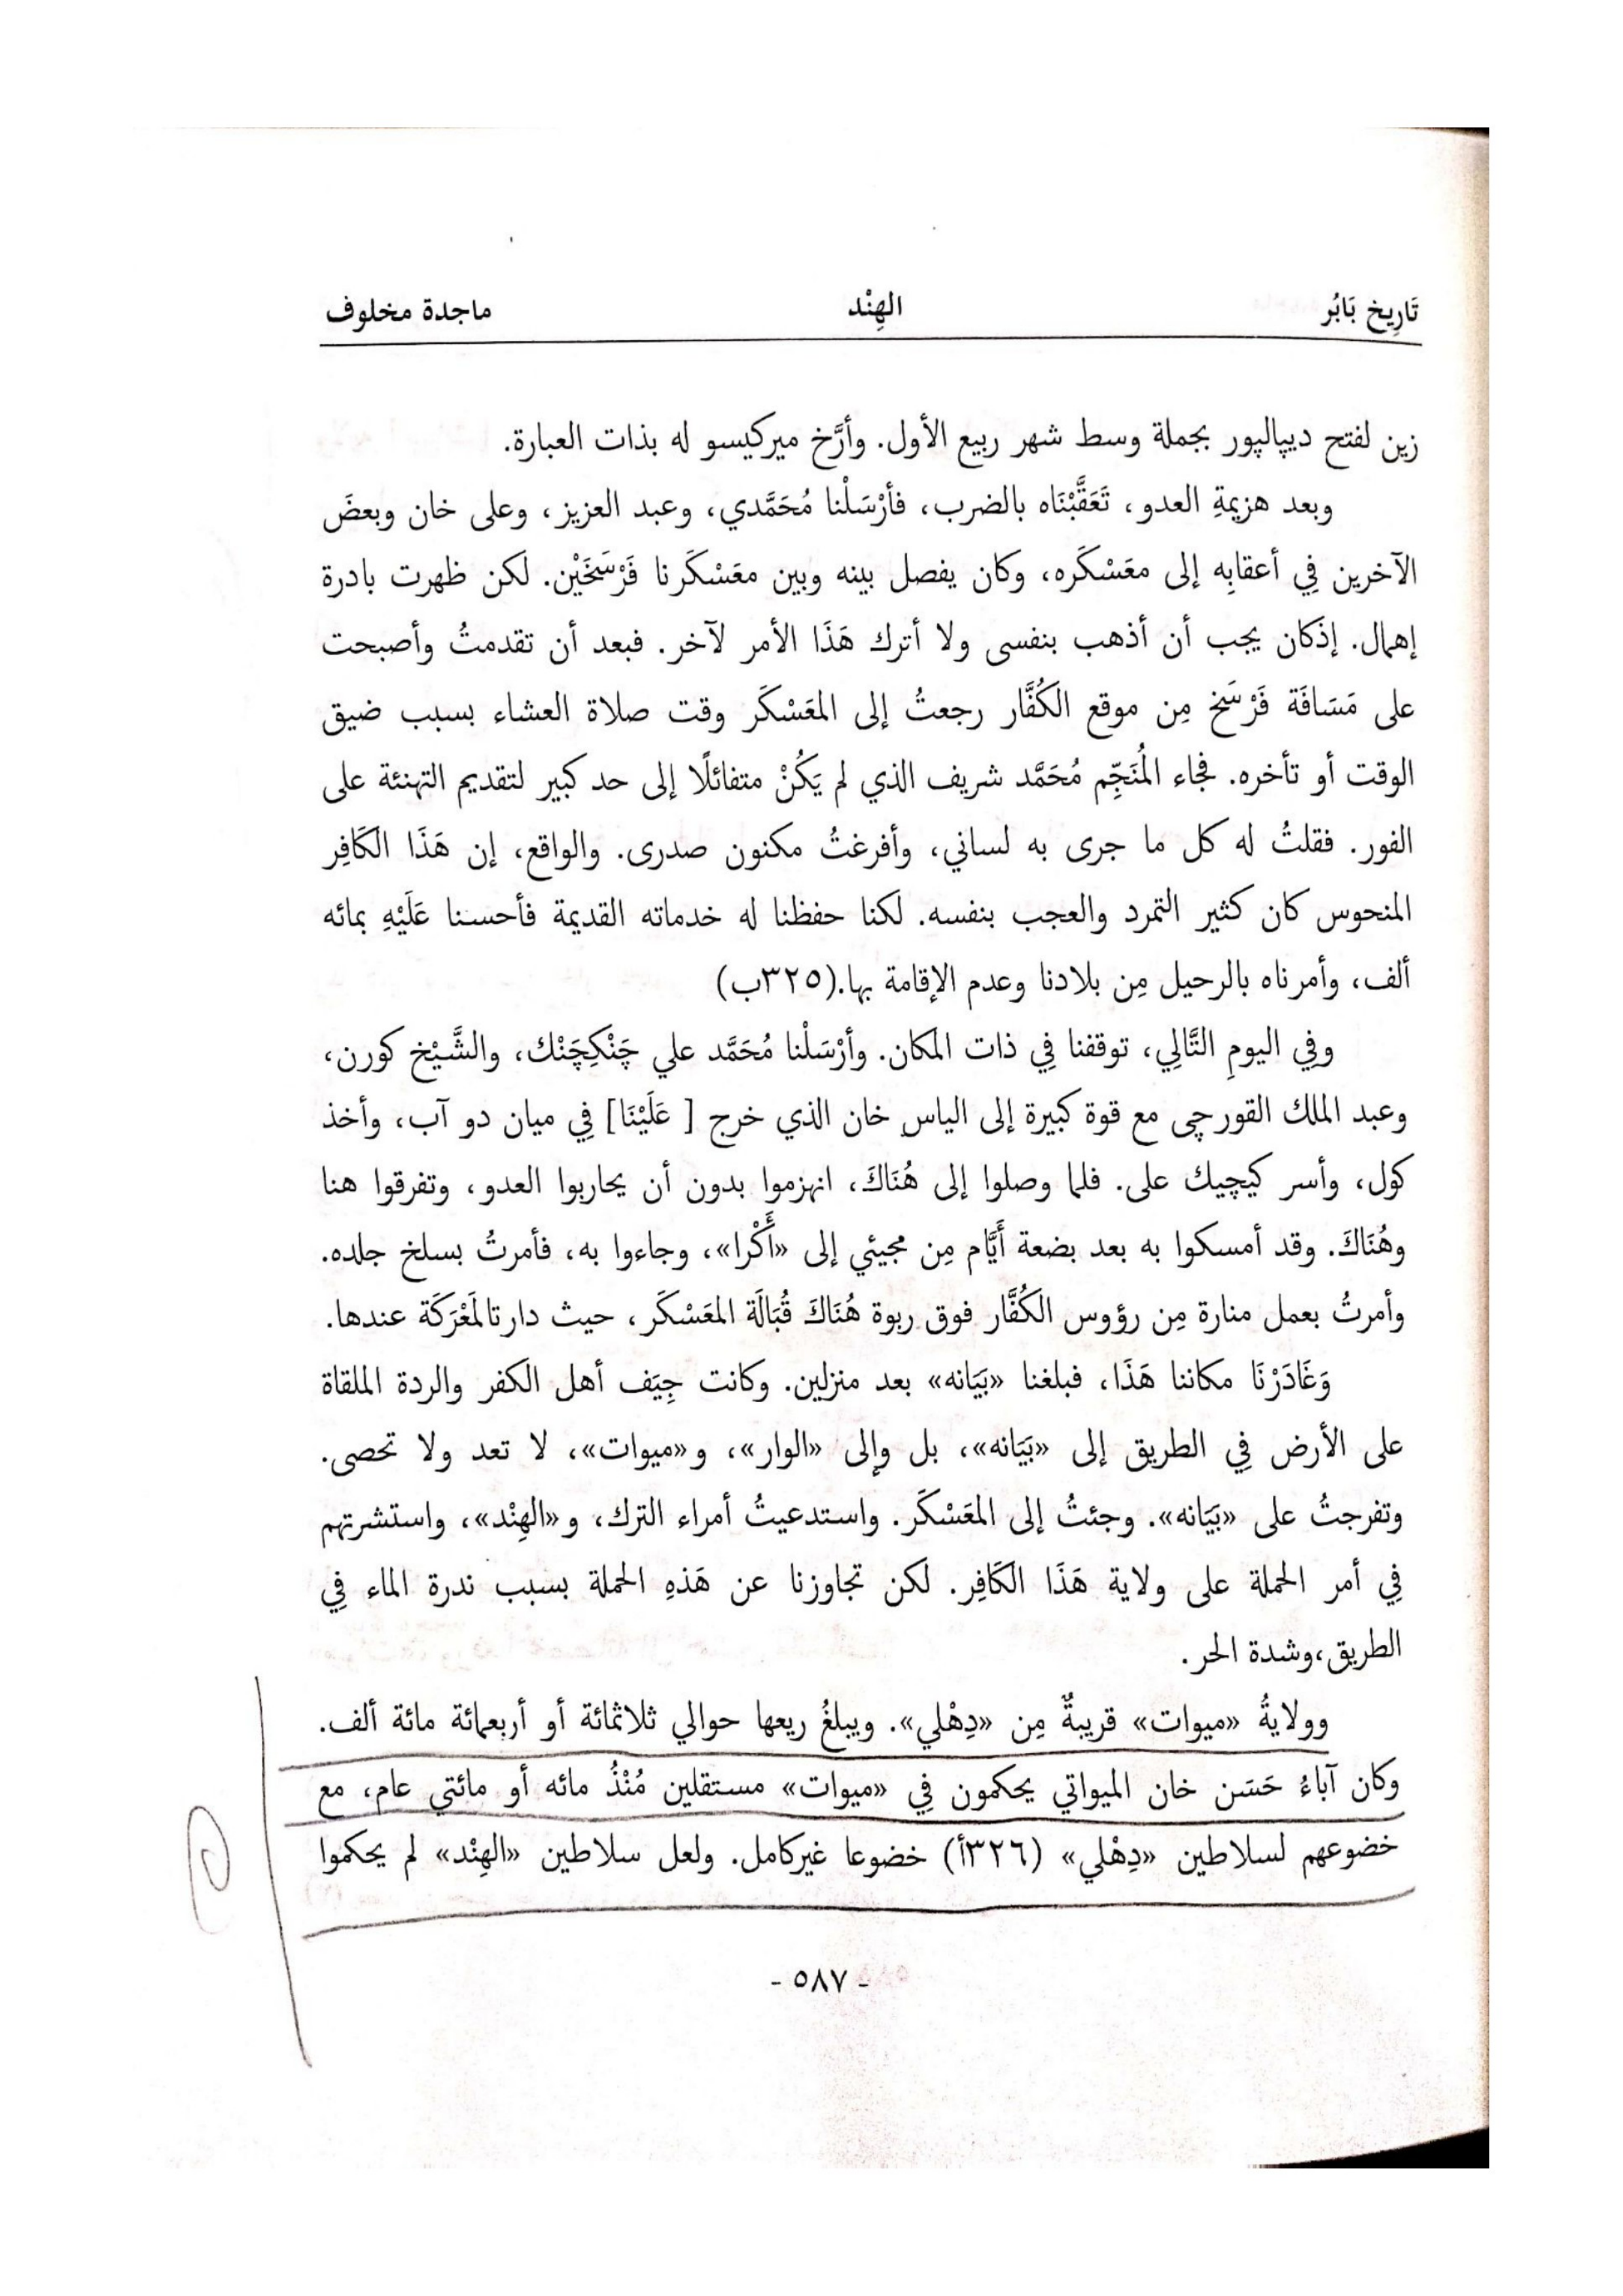 تَارِيخ بَابُر
الهِنْد
ماجدة مخلوف
زين لفتح ديپالپور بجملة وسط شهر ربيع الأول. وأرَّخ ميركيسو له بذات العبارة.
وبعد هزيمةِ العدو، تَعَقَّبْنَاه بالضرب، فأرْسَلْنا مُحَمَّدي، وعبد العزيز، وعلى خان وبعضَ
الآخرين فِي أعقابِه إلى معَسْكَره، وكان يفصل بينه وبين معَسْكَرنا فَرْسَخَيْن. لكن ظهرت بادرة
إهمال. إذَكان يجب أن أذهب بنفسى ولا أترك هَذَا الأمر لآخر. فبعد أن تقدمتُ وأصبحت
على مَسَافَة فَرْسَخ مِن موقع الكُفَّار رجعتُ إلى المعَسْكَر وقت صلاة العشاء بسبب ضيق
الوقت أو تأخره. فجاء المُنَجِّم مُحَمَّد شريف الذي لم يَكُنْ متفائلًا إلى حد كبير لتقديم التهنئة على
الفور. فقلتُ له كل ما جرى به لساني، وأفرغتُ مكنون صدرى. والواقع، إن هَذَا الكَافِر
المنحوس كان كثير التمرد والعجب بنفسه. لكنا حفظنا له خدماته القديمة فأحسنا عَلَيْهِ بمائه
ألف، وأمرناه بالرحيل مِن بلادنا وعدم الإقامة بها.(٣٢٥ب)
وفِي اليومِ التَّالِي، توقفنا فِي ذات المكان. وأرْسَلْنا مُحَمَّد علي چَنْكِچَنْك، والشَّيْخ كورن،
وعبد الملك القورچى مع قوة كبيرة إلى الياس خان الذي خرج [ عَلَيْنَا] فِي ميان دو آب، وأخذ
كول، وأسر كيچيك على. فلما وصلوا إلى هُنَاكَ، انهزموا بدون أن يحاربوا العدو، وتفرقوا هنا
وهُنَاكَ. وقد أمسكوا به بعد بضعة أَيَّام مِن مجيئي إلى «أَكْرا»، وجاءوا به، فأمرتُ بسلخ جلده.
وأمرتُ بعمل منارة مِن رؤوس الكُفَّار فوق ربوة هُنَاكَ قُبَالَة المعَسْكَر، حيث دارتالمَعْرَكَة عندها.
وَغَادَرْنَا مكاننا هَذَا، فبلغنا «بَيَانه» بعد منزلين. وكانت جِيَف أهل الكفر والردة الملقاة
على الأرض فِي الطريق إلى «بَيَانه»، بل وإلى «الوار»، و«ميوات»، لا تعد ولا تحصى.
وتفرجتُ على «بَيَانه». وجئتُ إلى المعَسْكَر. واستدعيتُ أمراء الترك، و«الهِنْد»، واستشرتهم
فِي أمر الحملة على ولاية هَذَا الكَافِر. لكن تجاوزنا عن هَذهِ الحملة بسبب ندرة الماء فِي
الطريق،وشدة الحر.
وولايةُ «ميوات» قريبةٌ مِن «دِهْلي». ويبلغُ ريعها حوالي ثلاثمائة أو أربعمائة مائة ألف.
وكان آباءُ حَسَن خان الميواتي يحكمون فِي «ميوات» مستقلين مُنْذُ مائه أو مائتي عام، مع
خضوعهم لسلاطين «دِهْلي» (٣٢٦أ) خضوعا غيركامل. ولعل سلاطين «الهِنْد» لم يحكموا
- ٥٨٧ -